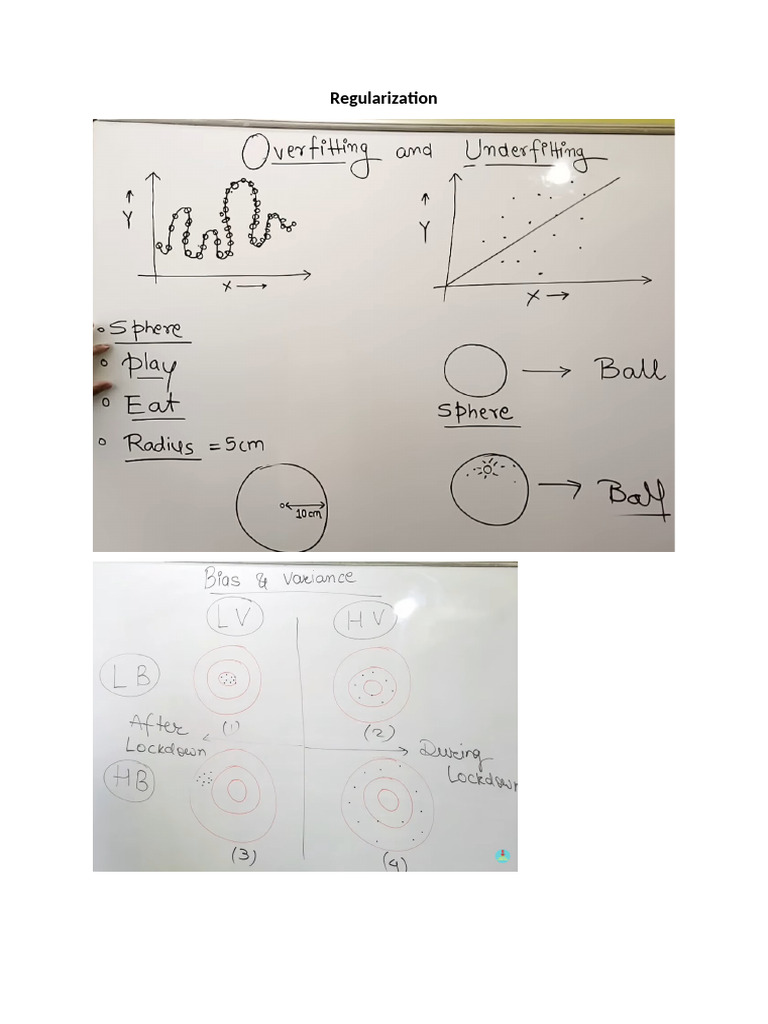 Regularization
Overfitting and Underfitting
Y
X
Y
X
Sphere
Play
Eat
Radius = 5cm
10cm
Ball
Sphere
Ball
Bias & Variance
LV
HV
LB
(1)
(2)
After
Lockdown
During
Lockdown
HB
(3)
(4)